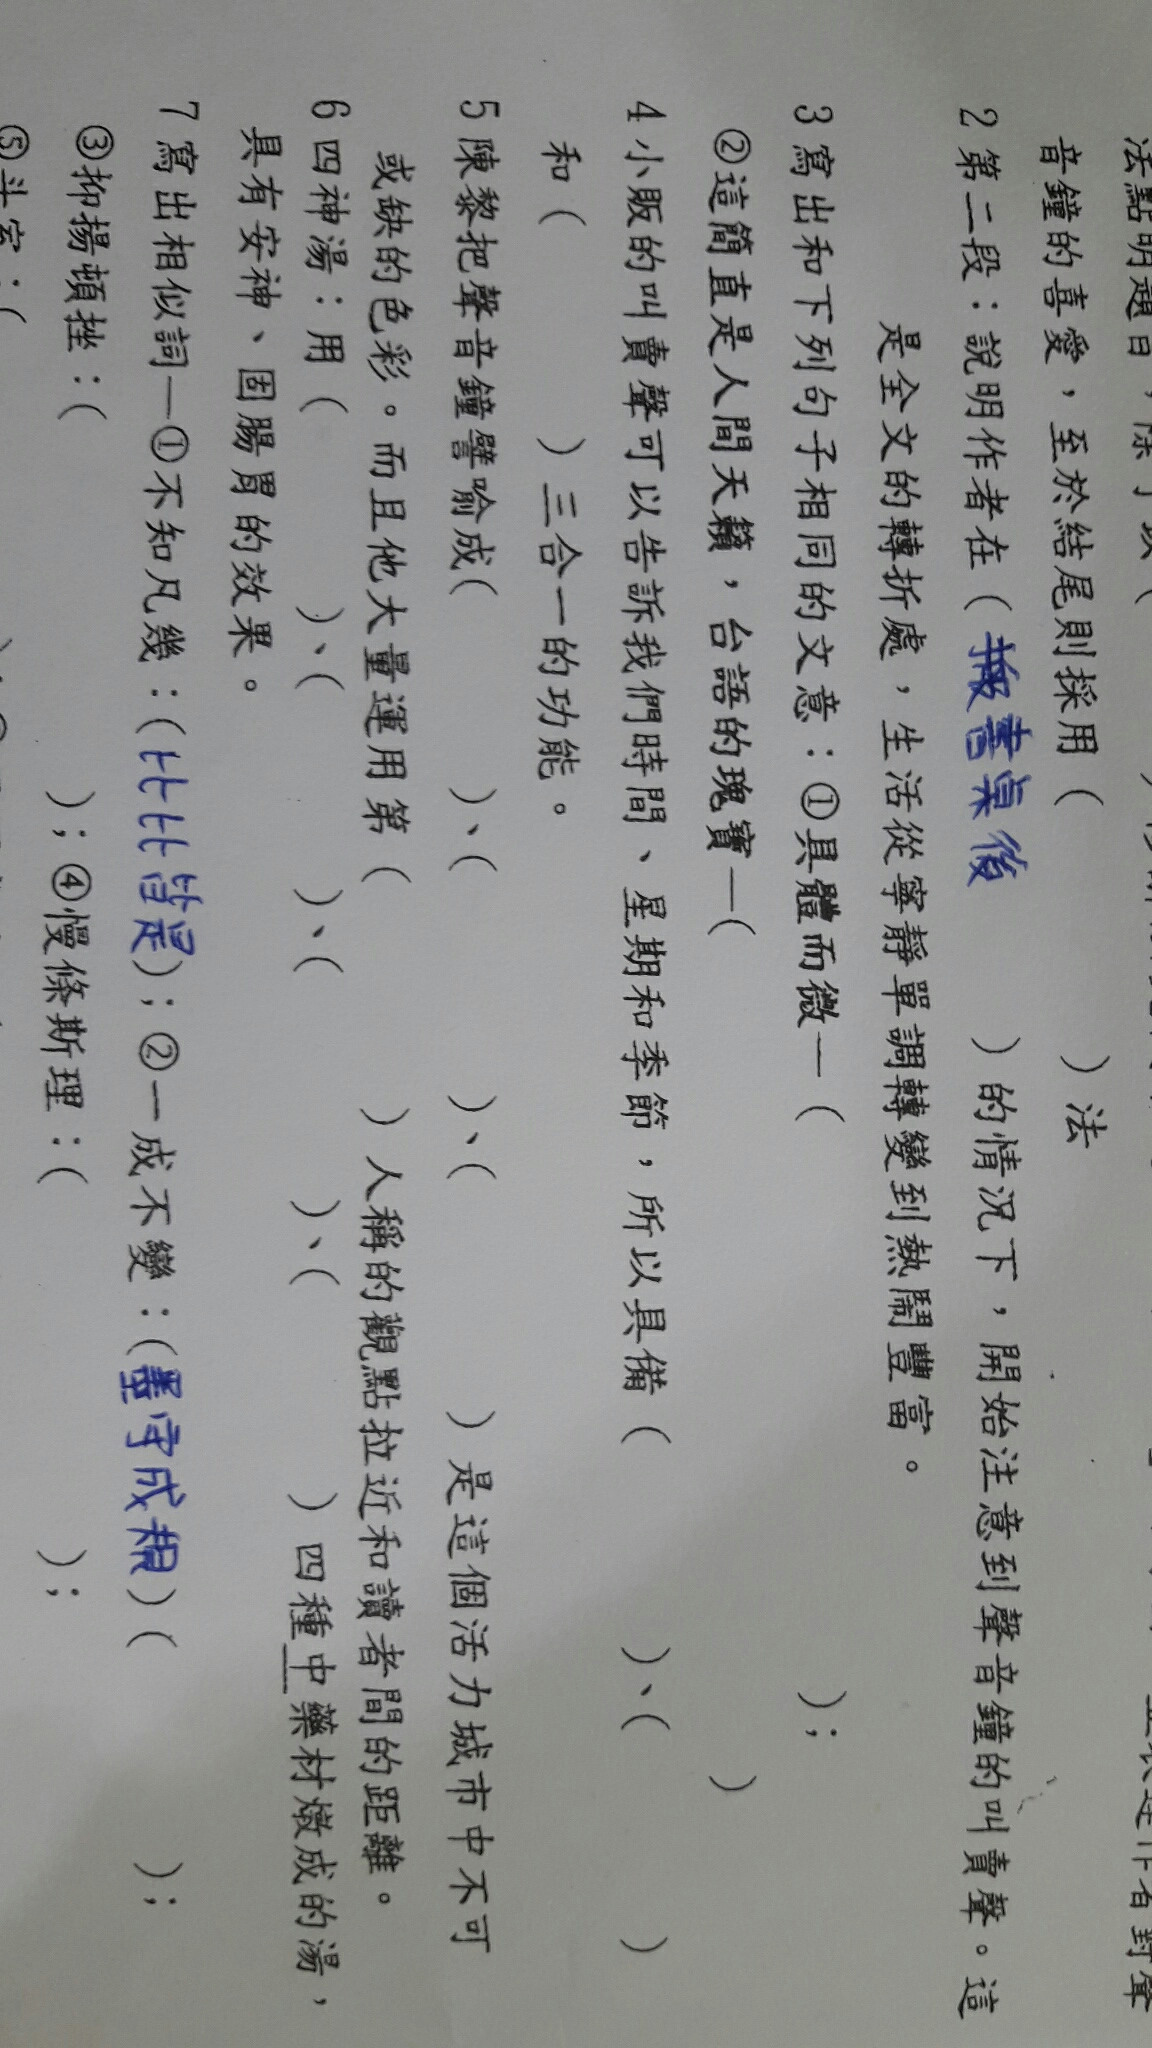 法點明題目，除了以(
音鐘的喜愛，至於結尾則採用( )法
2 第二段：說明作者在(搬書桌後)的情況下，開始注意到聲音鐘的叫賣聲。這
是全文的轉折處，生活從寧靜單調轉變到熱鬧豐富。
3 寫出和下列句子相同的文意：①具體而微—( )；
②這簡直是人間天籟，台語的瑰寶—( )
4 小販的叫賣聲可以告訴我們時間、星期和季節，所以具備( )、( )
和( )三合一的功能。
5 陳黎把聲音鐘譬喻成( )、( )、( )是這個活力城市中不可
或缺的色彩。而且他大量運用第( )人稱的觀點拉近和讀者間的距離。
6 四神湯：用( )、( )、( )、( )四種中藥材燉成的湯，
具有安神、固腸胃的效果。
7 寫出相似詞—①不知凡幾：(比比皆是)；②一成不變：(墨守成規)( )；
③抑揚頓挫：( )；④慢條斯理：( )；
⑤斗室：(